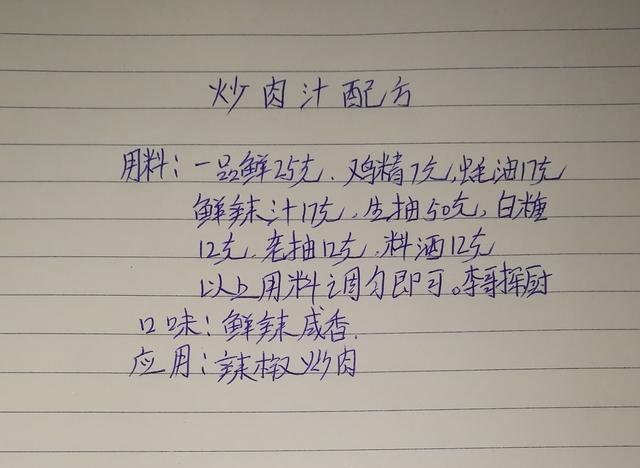 炒肉汁配方
用料：一品鲜25克、鸡精7克，蚝油17克
鲜辣汁17克，生抽50克，白糖
12克，老抽12克，料酒12克
以上用料调匀即可。李哥探厨
口味：鲜辣咸香.
应用：辣椒炒肉